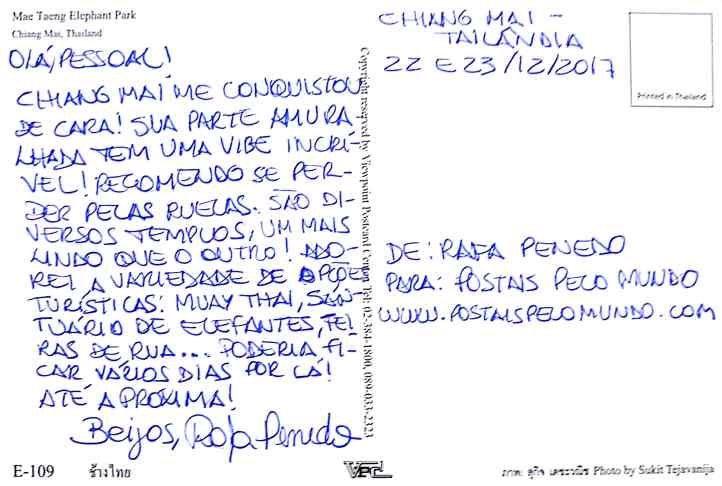 Mae Taeng Elephant Park
Chiang Mai, Thailand
OLÁ, PESSOAL!
CHIANG MAI ME CONQUISTOU
DE CARA! SUA PARTE AMURA-
LHADA TEM UMA VIBE INCRÍ-
VEL! RECOMENDO SE PER-
DER PELAS RUELAS. SÃO DI-
VERSOS TEMPLOS, UM MAIS
LINDO QUE O OUTRO! ADO-
REI A VARIEDADE DE OPÇÕES
TURÍSTICAS: MUAY THAI, SAN-
TUÁRIO DE ELEFANTES, FEI-
RAS DE RUA... PODERIA FI-
CAR VÁRIOS DIAS POR LÁ!
ATÉ A PRÓXIMA!
Beijos, Rafa Penedo
E-109 ช้างไทย
Copyright reserved by Viewpoint Postcard Center Tel: 02-384-1800, 089-033-2323
CHIANG MAI -
TAILÂNDIA
22 E 23/12/2017
Printed in Thailand
DE: RAFA PENEDO
PARA: POSTAIS PELO MUNDO
WWW.POSTAISPELOMUNDO.COM
ภาพ: สุกิจ เตชะวณิช Photo by Sukit Tejavanija